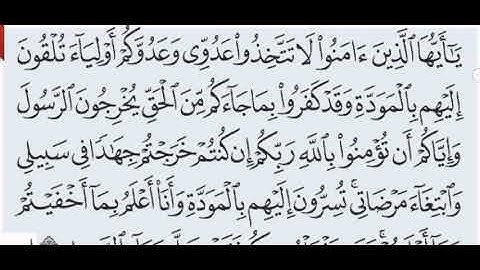 يَٰٓأَيُّهَا ٱلَّذِينَ ءَامَنُوا۟ لَا تَتَّخِذُوا۟ عَدُوِّى وَعَدُوَّكُمْ أَوْلِيَآءَ تُلْقُونَ
إِلَيْهِم بِٱلْمَوَدَّةِ وَقَدْ كَفَرُوا۟ بِمَا جَآءَكُم مِّنَ ٱلْحَقِّ يُخْرِجُونَ ٱلرَّسُولَ
وَإِيَّاكُمْ أَن تُؤْمِنُوا۟ بِٱللَّهِ رَبِّكُمْ إِن كُنتُمْ خَرَجْتُمْ جِهَٰدًا فِى سَبِيلِى
وَٱبْتِغَآءَ مَرْضَاتِى ۚ تُسِرُّونَ إِلَيْهِم بِٱلْمَوَدَّةِ وَأَنَا۠ أَعْلَمُ بِمَآ أَخْفَيْتُمْ